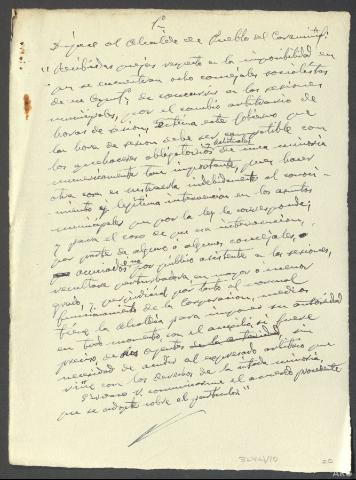 1º
Dígase al Alcalde de Puebla del
"Recibidas quejas respecto a la imposibilidad en
que se encuentran ocho concejales socialistas
de ese de concurrir a las sesiones
municipales, por el cambio arbitrario de
horas de sesión, estima este Gobierno que
la hora de sesión debe ser compatible con
los quehaceres obligatorios de una minoría
numéricamente tan importante, pues hacer
otra cosa es sustraerla indebidamente al conoci-
miento y legítima intervención en los asuntos
municipales que por la ley le corresponde;
y para el caso de que esa intervención,
por parte de alguno o algunos concejales, o
por público asistente a las sesiones,
resultara perturbadora en mayor o menor
grado, y perjudicial por tanto al normal
funcionamiento de la Corporación, medios
tiene la Alcaldía para imponer su autoridad
en todo momento, con el auxilio, si fuere
preciso, de sus agentes de la autoridad, sin
necesidad de acudir al expresado arbitrio que
con los derechos de la citada minoría.
y comuníqueme el acuerdo procedente
que se adopte sobre el particular"